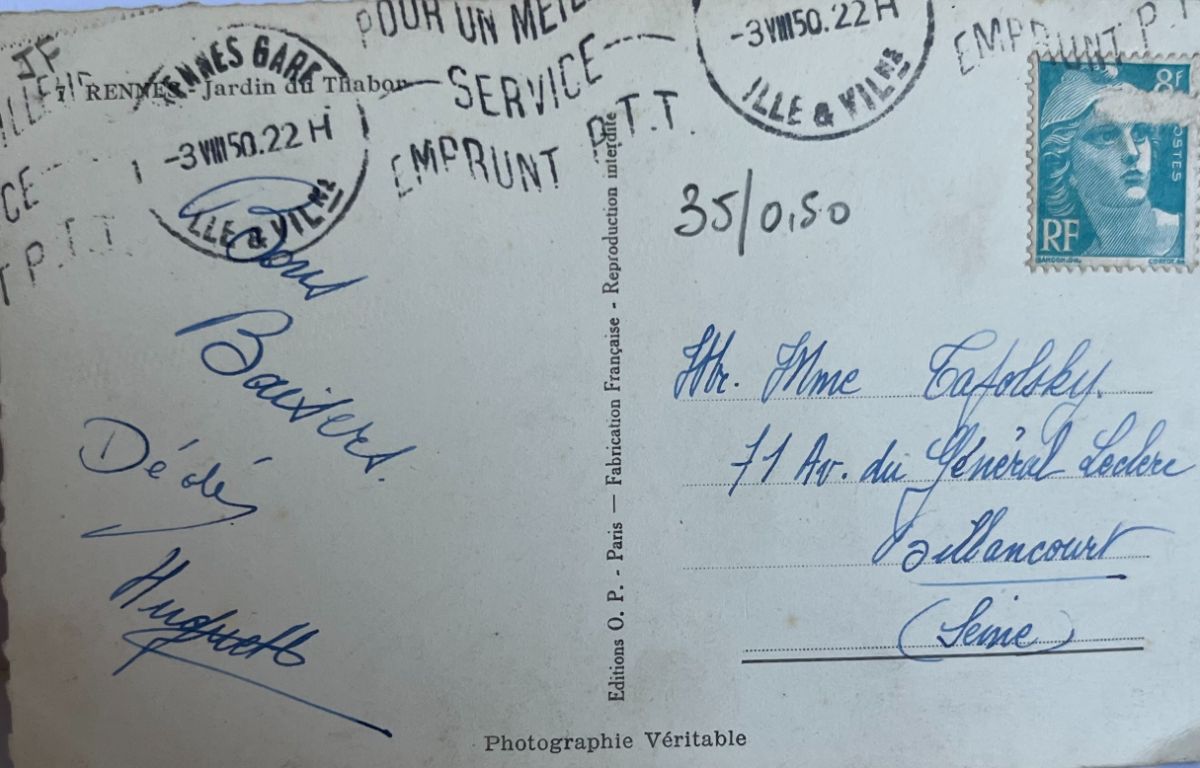 POUR UN MEIL
SERVICE
EMPRUNT P.T.T.
RENNES GARE
-3 VIII 50.22 H
ILLE & VILNE
-3 VIII 50.22 H
ILLE & VILNE
EMPRUNT P.T
CE
T P.T.T.
7 RENNES - Jardin du Thabor
8F
POSTES
RF
35/0,50
Bons
Baisers.
Dédé
Huguette
Mr. Mme Tafolsky.
71 Av. du Général Leclerc
Billancourt
(Seine)
Editions O. P. - Paris — Fabrication Française - Reproduction interdite
Photographie Véritable